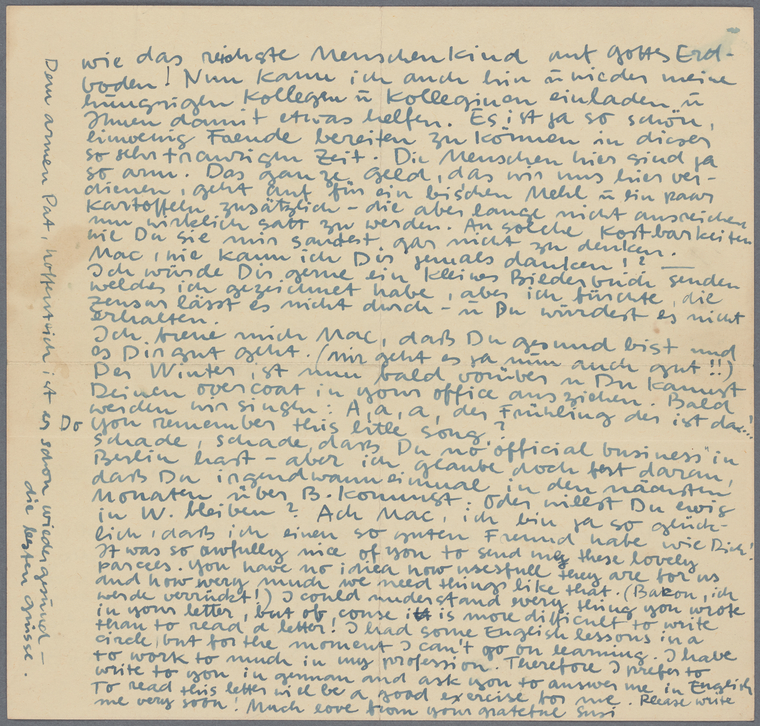 wie das reichste Menschenkind auf Gottes Erd-
boden! Nun kann ich auch hin u wieder meine
hungrigen Kollegen u Kolleginen einladen u
Ihnen damit etwas helfen. Es ist ja so schön,
einwenig Freude bereiten zu können in dieser
so sehr traurigen Zeit. Die Menschen hier sind ja
so arm. Das ganze Geld, das wir uns hier ver-
dienen, geht auf für ein bischen Mehl u ein paar
Kartoffeln zusätzlich - die aber lange nicht ausreichen
um wirklich satt zu werden. An solche Kostbarkeiten
wie Du sie mir sandest, gar nicht zu denken.
Mac, wie kann ich Dir jemals danken!? —
Ich würde Dir gerne ein kleines Bilderbuch senden
welches ich gezeichnet habe, aber ich fürchte, die
Zensur lässt es nicht durch - u Du würdest es nicht
erhalten.
Ich freue mich Mac, daß Du gesund bist und
es Dir gut geht. (mir geht es ja nun auch gut!!)
Der Winter ist nun bald vorüber u Du kannst
Deinen overcoat in your office ausziehen. Bald
werden wir singen: A, a, a, der Frühling der ist da...!
Do you remember this little song?
Schade, schade, daß Du no "official business" in
Berlin hast - aber ich glaube doch fest daran,
daß Du irgendwann einmal in den nächsten
Monaten über B. kommst. Oder willst Du ewig
in W. bleiben? Ach Mac, ich bin ja so glück-
lich, daß ich einen so guten Freund habe wie Dich!
It was so awfully nice of you to send me these lovely
parcels. You have no idea how usesfull they are for us
and how very much we need things like that. (Bakon, ich
werde verrückt!) I could understand every thing you wrote
in your letter, but of couse it is more difficult to write
than to read a letter. I had some English lessons in a
circle, but for the moment I can't go on learning. I have
to work to much in my profession. Therefore I prefer to
write to you in german and ask you to answer me in English
To read this letter will be a good exercise for me. Please write
me very soon! Much love from your grateful Susi
Dem armen Pat, hoffentlich ist er schon wieder gesund -
die besten Grüsse.